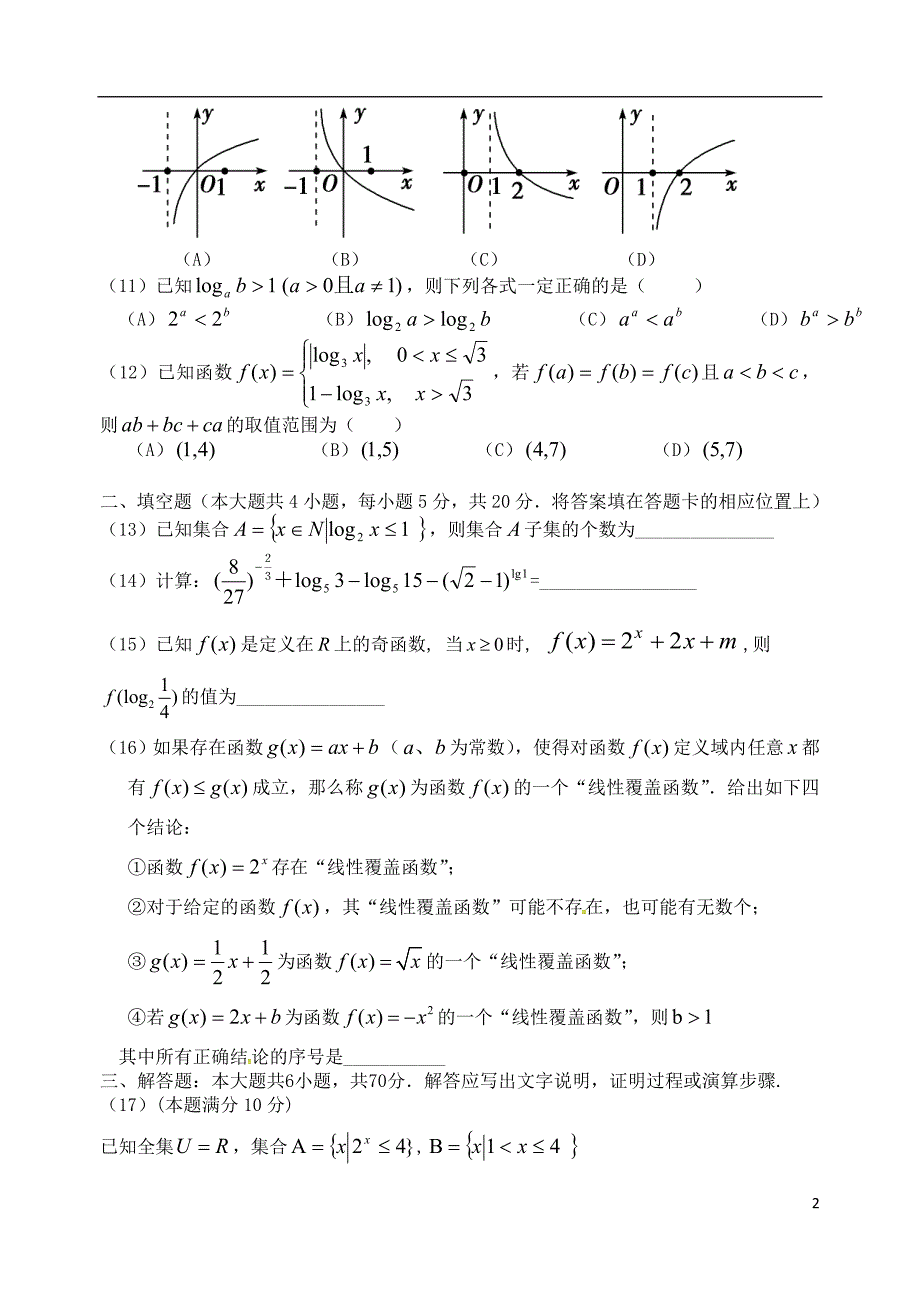 y y y y
-1 O 1 x -1 O 1 x O 1 2 x O 1 2 x
（A） （B） （C） （D）
（11）已知 logₐ b > 1 (a > 0且a ≠ 1)，则下列各式一定正确的是（ ）
（A）2ᵃ < 2ᵇ （B）log₂ a > log₂ b （C）aᵃ < aᵇ （D）bᵃ > bᵇ
（12）已知函数 f(x) = { |log₃ x|, 0 < x ≤ √3
1 − log₃ x, x > √3 ，若 f(a) = f(b) = f(c) 且 a < b < c，
则 ab + bc + ca 的取值范围为（ ）
（A）(1,4) （B）(1,5) （C）(4,7) （D）(5,7)
二、填空题（本大题共 4 小题，每小题 5 分，共 20 分．将答案填在答题卡的相应位置上）
（13）已知集合 A = {x ∈ N|log₂ x ≤ 1 }，则集合 A 子集的个数为_______________
（14）计算：(8/27)^(−2/3)＋log₅ 3 − log₅ 15 − (√2 − 1)^(lg1) =_________________
（15）已知 f(x) 是定义在 R 上的奇函数, 当 x ≥ 0 时, f(x) = 2ˣ + 2x + m ,则
f(log₂ 1/4) 的值为________________
（16）如果存在函数 g(x) = ax + b（ a、b 为常数），使得对函数 f(x) 定义域内任意 x 都
有 f(x) ≤ g(x) 成立，那么称 g(x) 为函数 f(x) 的一个“线性覆盖函数”．给出如下四
个结论：
①函数 f(x) = 2ˣ 存在“线性覆盖函数”；
②对于给定的函数 f(x)，其“线性覆盖函数”可能不存在，也可能有无数个；
③ g(x) = 1/2 x + 1/2 为函数 f(x) = √x 的一个“线性覆盖函数”；
④若 g(x) = 2x + b 为函数 f(x) = −x² 的一个“线性覆盖函数”，则 b > 1
其中所有正确结论的序号是___________
三、解答题：本大题共6小题，共70分．解答应写出文字说明，证明过程或演算步骤.
（17）(本题满分 10 分)
已知全集 U = R，集合 A = {x|2ˣ ≤ 4}, B = {x|1 < x ≤ 4 }
2